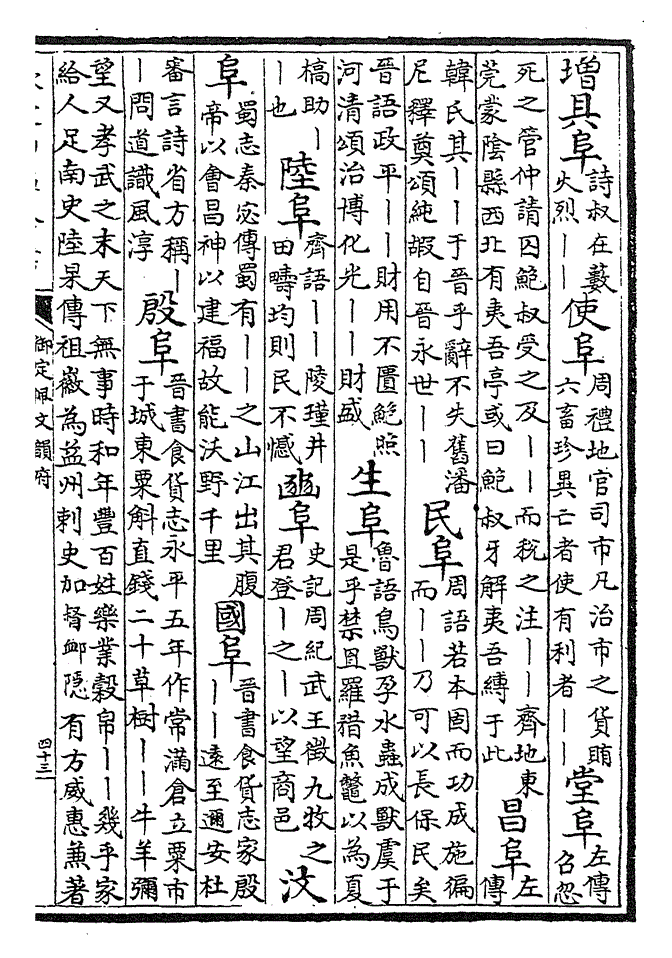 增具阜詩叔在藪火烈——使阜周禮地官司市凡治市之貨賄六畜珍異亡者使有利者——堂阜左傳召忽
死之管仲請囚鮑叔受之及——而稅之注——齊地東莞蒙陰縣西北有夷吾亭或曰鮑叔牙解夷吾縛于此昌阜左傳
韓氏其——于晉乎辭不失舊潘尼釋奠頌純嘏自晉永世——民阜周語若本固而功成施徧而——乃可以長保民矣
晉語政平——財用不匱鮑照河清頌治博化光——財盛生阜魯語鳥獸孕水蟲成獸虞于是乎禁罝羅猎魚鼈以為夏
槁助——也陸阜齊語——陵瑾井田疇均則民不憾豳阜史記周紀武王徵九牧之君登—之—以望商邑汶
阜蜀志秦宓傳蜀有——之山江出其腹帝以會昌神以建福故能沃野千里國阜晉書食貨志家殷——遠至邇安杜
審言詩省方稱——問道識風淳殷阜晉書食貨志永平五年作常滿倉立粟市于城東粟斛直錢二十草樹——牛羊彌
望又孝武之末天下無事時和年豐百姓樂業穀帛——幾乎家給人足南史陸杲傳祖徽為益州刺史加督卹隱有方威惠兼著
御定佩文韻府
四十三